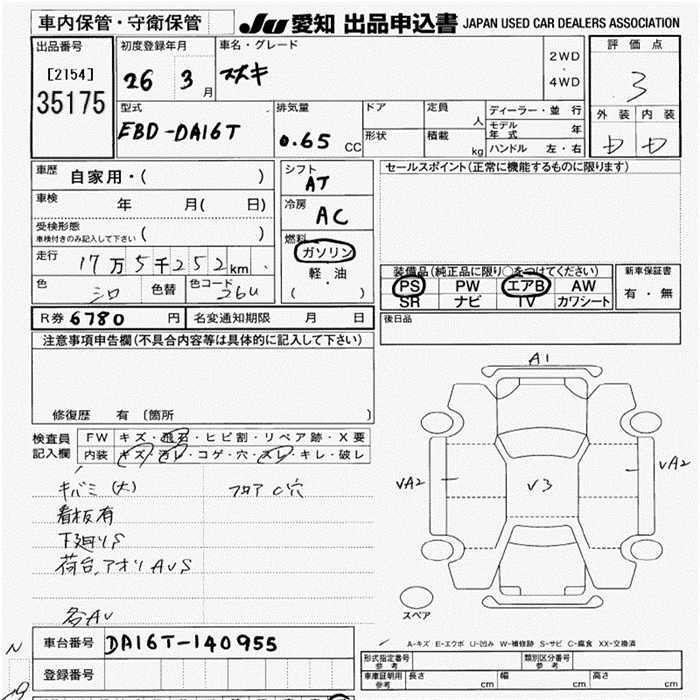 車内保管・守衛保管
JU 愛知 出品申込書 JAPAN USED CAR DEALERS ASSOCIATION
出品番号
[2154]
35175
初度登録年月
26 3 月
車名・グレード
スズキ
2WD
・
4WD
評価点
3
外装 内装
型式
EBD-DA16T
排気量
0.65 CC
ドア
形状
定員 人
積載 kg
ディーラー・並 行
モデル年式 年
ハンドル 左・右
車歴 自家用・( )
車検 年 月( 日)
受検形態
車検付きのみ記入して下さい ( )
走行 17万5千252km
色 シロ 色替 色コード 26U
シフト
AT
冷房
AC
燃料
ガソリン
・
軽油
( )
セールスポイント(正常に機能するものに限ります)
装備品(純正品に限り○をつけてください)
PS PW エアB AW
SR ナビ TV カワシート
新車保証書
有・無
後日品
R券 6780 円 名変通知期限 月 日
注意事項申告欄(不具合内容等は具体的に記入して下さい)
修復歴 有〔箇所 〕
検査員記入欄
FW キズ・飛石・ヒビ割・リペア跡・X要
内装 キズ・汚レ・コゲ・穴・スレ・キレ・破レ
キバミ(大) フロア C穴
看板有
下廻りS
荷台、アオリ AUS
各AU
A1
VA2
V3
VA2
スペア
A-キズ E-エクボ U-凹み W-補修跡 S-サビ C-腐食 XX-交換済
車台番号 DA16T-140955
登録番号
形式指定番号 参考
類別区分番号 参考
車庫証明用 参考 長さ cm 幅 cm 高さ cm
N